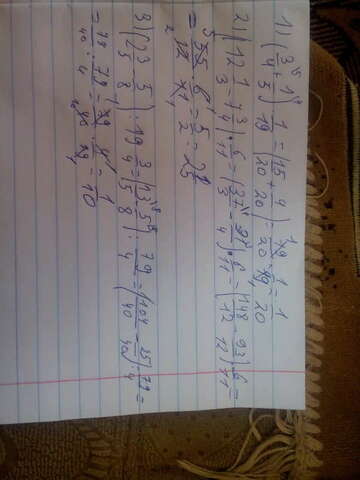 1) (3/4 + 1/5) · 1/19 = (15/20 + 4/20) · 1/19 = 19/20 · 1/19 = 1/20
2) (12 1/3 - 7 3/4) · 6/11 = (37/3 - 31/4) · 6/11 = (148/12 - 93/12) · 6/11 =
= 55/12 · 6/11 = 5/2 =
3) (2 3/5 - 5/8) : 19 3/4 = (13/5 - 5/8) : 79/4 = (104/40 - 25/40) : 79/4 =
= 79/40 : 79/4 = 79/40 · 4/79 = 1/10